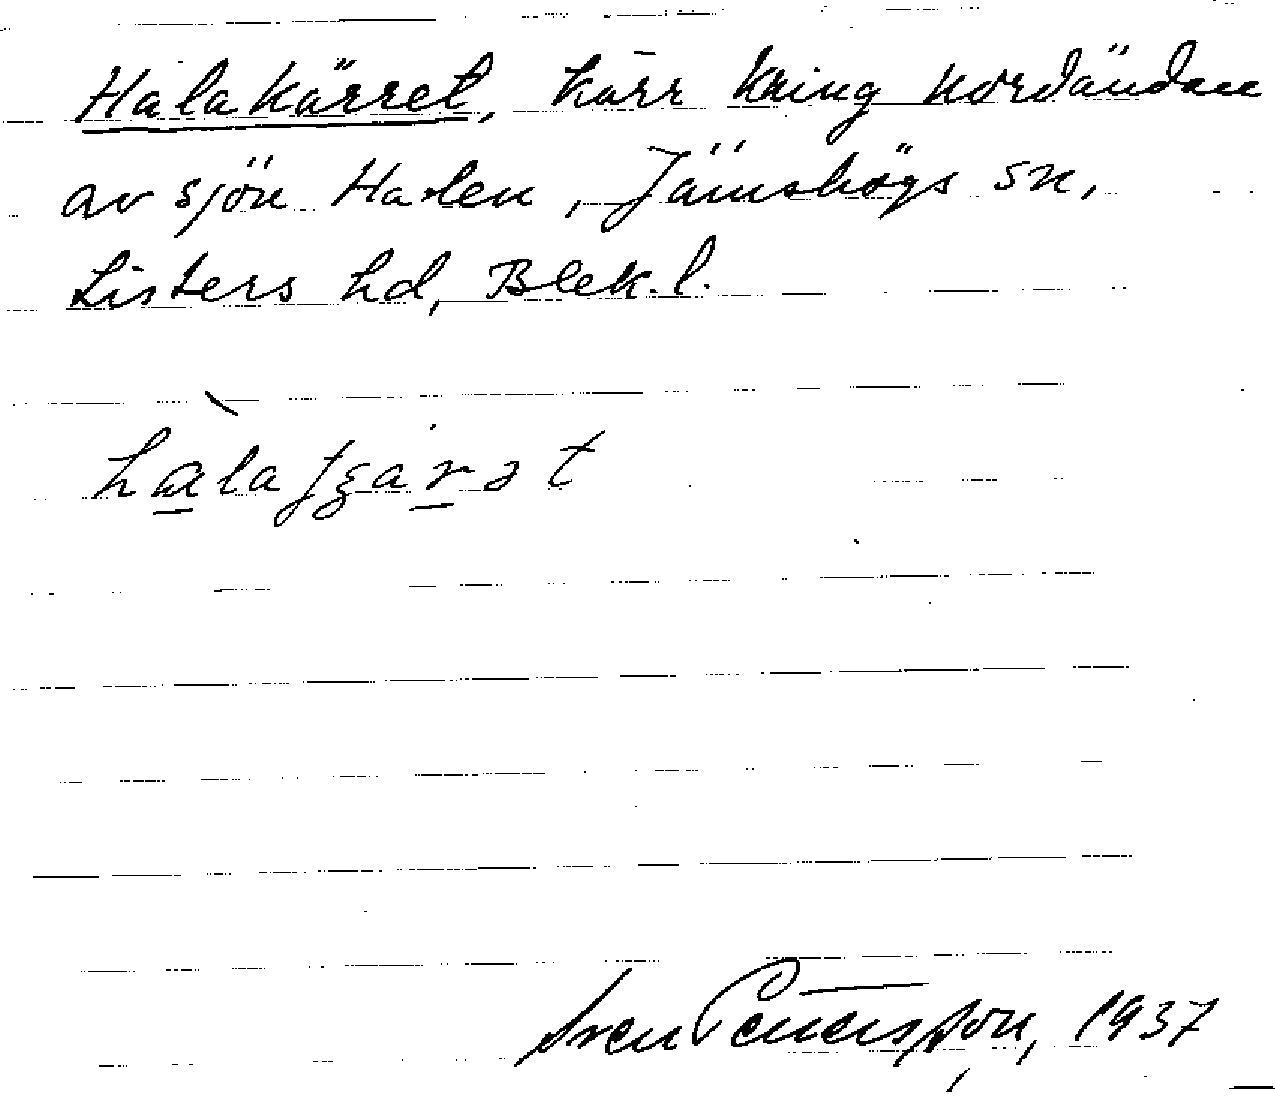 Halakärret, kärr kring nordändan
av sjön Halen, Jämshögs sn,
Listers hd, Blek. l.
Sven Petersson, 1937